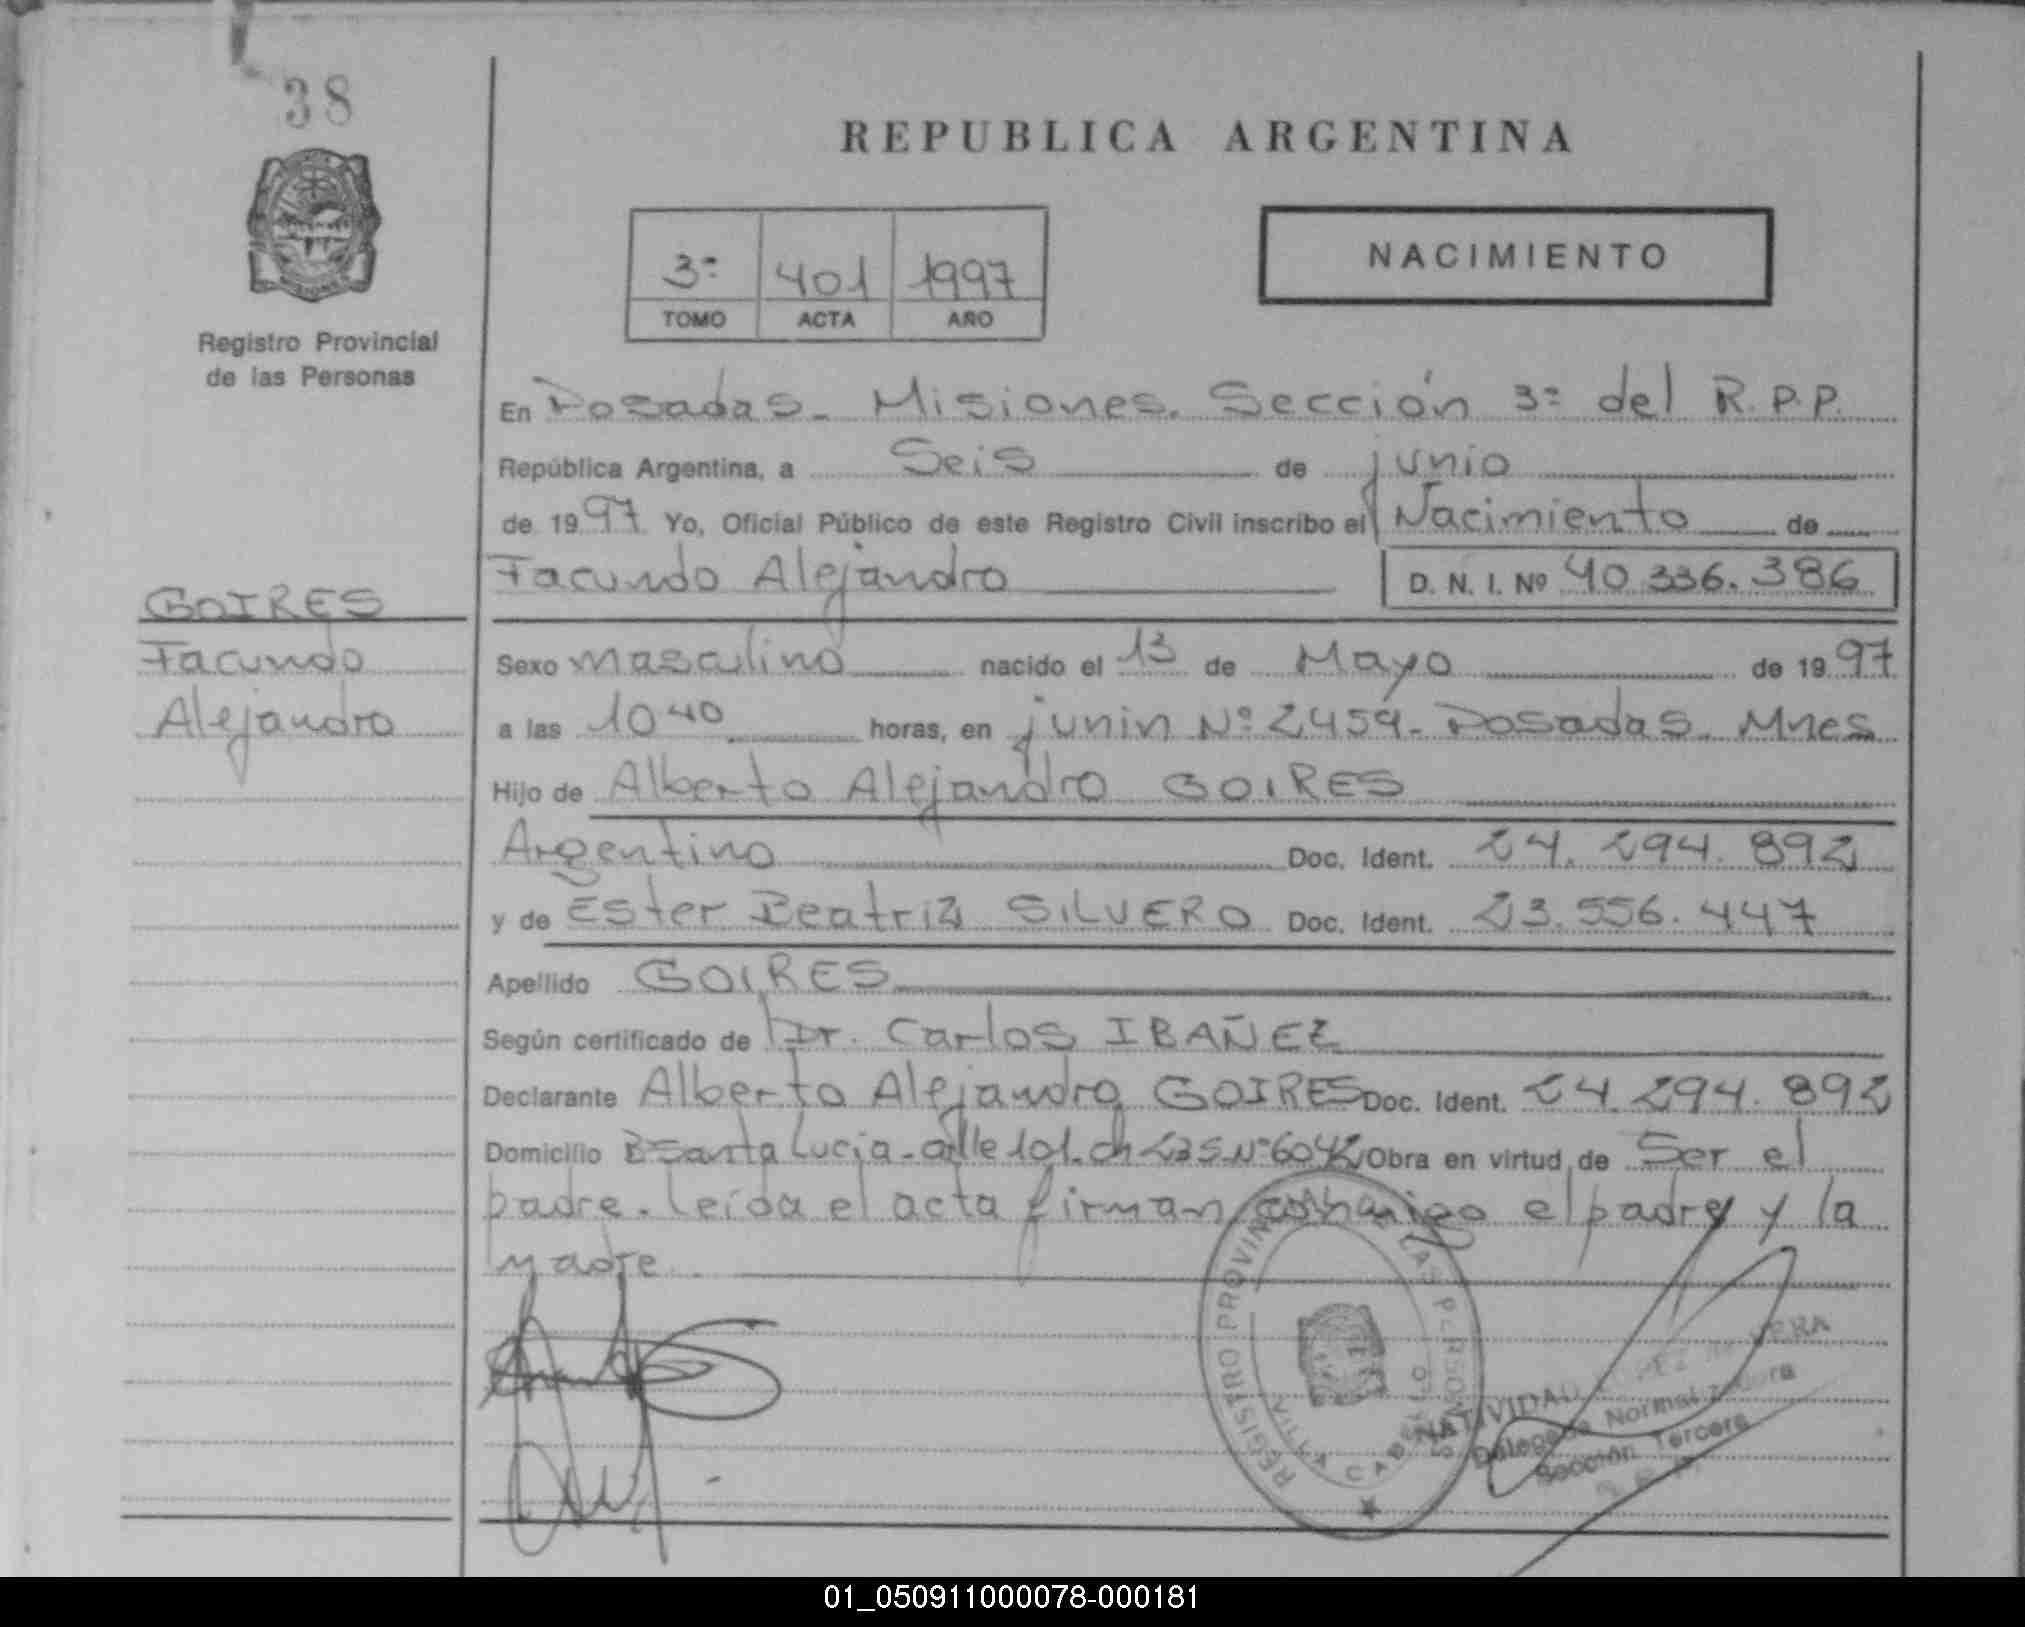 38
REPUBLICA ARGENTINA
NACIMIENTO
3º 401 1997
TOMO ACTA AÑO
Registro Provincial
de las Personas
En Posadas - Misiones. Sección 3º del R.P.P.
República Argentina, a Seis de junio
de 1997 Yo, Oficial Público de este Registro Civil inscribo el Nacimiento de
Facundo Alejandro D. N. I. Nº 40.336.386
GOIRES
Facundo
Alejandro
Sexo masculino nacido el 13 de Mayo de 1997
a las 10 40 horas, en junin Nº 2459 - Posadas - Mnes
Hijo de Alberto Alejandro GOIRES
Argentino Doc. Ident. 24.294.892
y de Ester Beatriz SILVERO Doc. Ident. 23.556.447
Apellido GOIRES
Según certificado de Dr. Carlos IBAÑEZ
Declarante Alberto Alejandro GOIRES Doc. Ident. 24.294.892
Domicilio Bº Santa Lucia - calle 101 - ch Nº Obra en virtud de Ser el
padre. leída el acta firman conmigo el padre y la
madre
REGISTRO PROVIN LAS PERSONAS
NATIVIDAD
Delegada Normalizadora
Sección Tercera
01_050911000078-000181